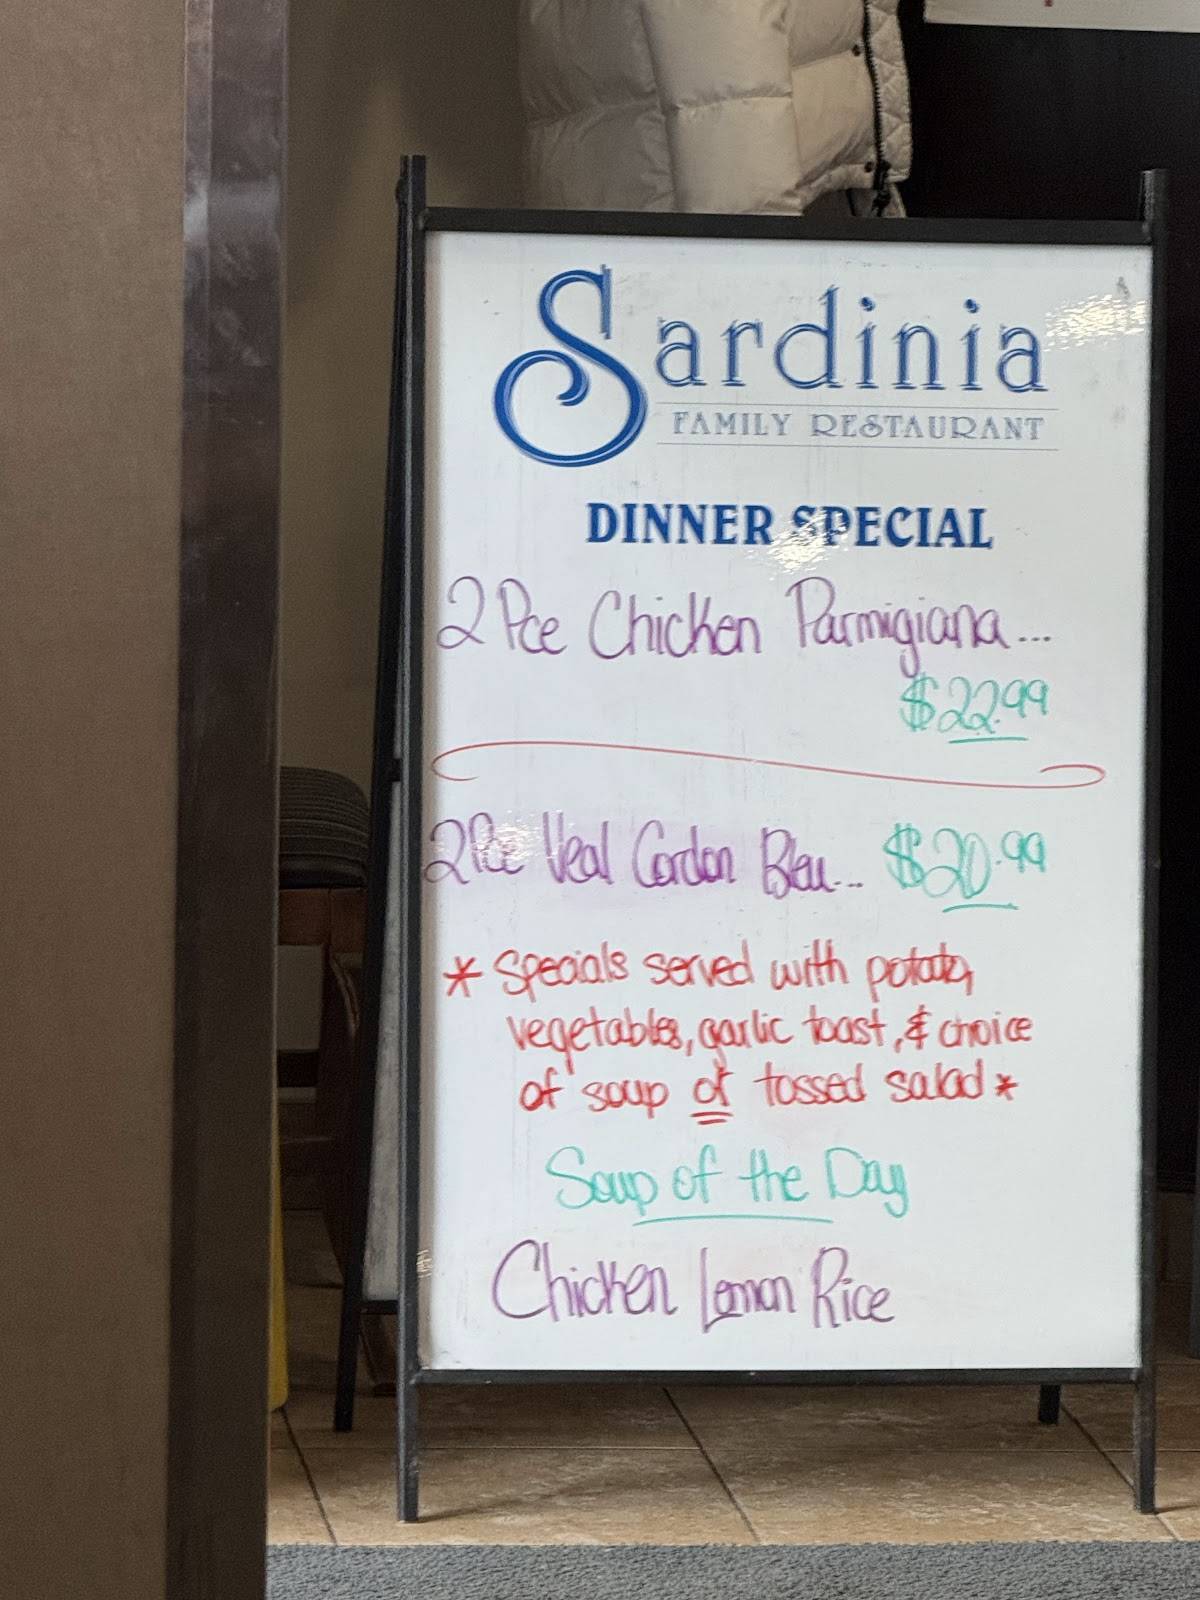 Sardinia
FAMILY RESTAURANT
DINNER SPECIAL
2 Pce Chicken Parmigiana...
$22.99
2 Pce Veal Cordon Bleu... $20.99
* Specials served with potato,
vegetables, garlic toast, & choice
of soup or tossed salad *
Soup of the Day
Chicken Lemon Rice